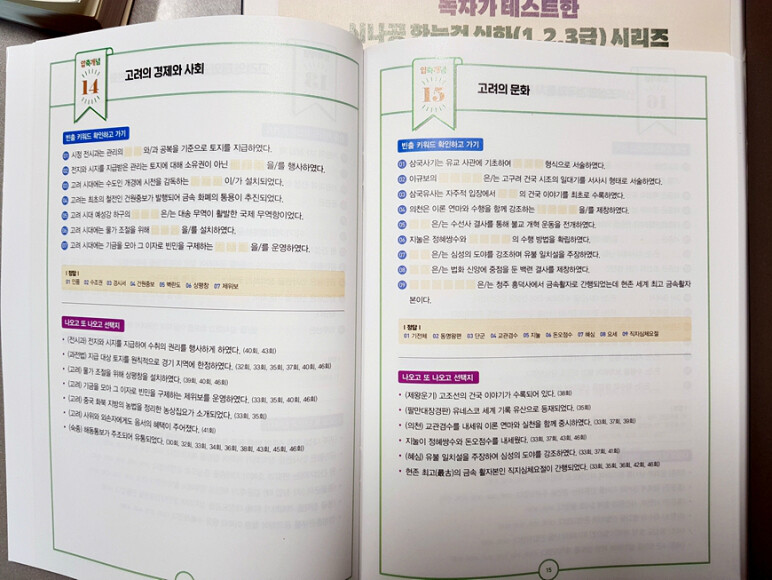 독자가 테스트한
시나공 한능검 심화(1,2,3급) 시리즈
압축개념
14
고려의 경제와 사회
빈출 키워드 확인하고 가기
01 시정 전시과는 관리의 와/과 공복을 기준으로 토지를 지급하였다.
02 전지와 시지를 지급받은 관리는 토지에 대해 소유권이 아닌 을/를 행사하였다.
03 고려 시대에는 수도인 개경에 시전을 감독하는 이/가 설치되었다.
04 고려는 최초의 철전인 건원중보가 발행되어 금속 화폐의 통용이 추진되었다.
05 고려 시대 예성강 하구의 은/는 대송 무역이 활발한 국제 무역항이었다.
06 고려 시대에는 물가 조절을 위해 을/를 설치하였다.
07 고려 시대에는 기금을 모아 그 이자로 빈민을 구제하는 을/를 운영하였다.
| 정답 |
01 인품 02 수조권 03 경시서 04 건원중보 05 벽란도 06 상평창 07 제위보
나오고 또 나오고 선택지
• (전시과) 전지와 시지를 지급하여 수취의 권리를 행사하게 하였다. (40회, 43회)
• (과전법) 지급 대상 토지를 원칙적으로 경기 지역에 한정하였다. (32회, 33회, 35회, 37회, 40회, 46회)
• (고려) 물가 조절을 위해 상평창을 설치하였다. (39회, 40회, 46회)
• (고려) 기금을 모아 그 이자로 빈민을 구제하는 제위보를 운영하였다. (33회, 35회, 40회, 46회)
• (고려) 중국 화북 지방의 농법을 정리한 농상집요가 소개되었다. (33회, 35회)
• (고려) 사위와 외손자에게도 음서의 혜택이 주어졌다. (41회)
• (숙종) 해동통보가 주조되어 유통되었다. (30회, 32회, 33회, 34회, 36회, 38회, 43회, 45회, 46회)
압축개념
15
고려의 문화
빈출 키워드 확인하고 가기
01 삼국사기는 유교 사관에 기초하여 형식으로 서술하였다.
02 이규보의 은/는 고구려 건국 시조의 일대기를 서사시 형태로 서술하였다.
03 삼국유사는 자주적 입장에서 의 건국 이야기를 최초로 수록하였다.
04 의천은 이론 연마와 수행을 함께 강조하는 을/를 제창하였다.
05 은/는 수선사 결사를 통해 불교 개혁 운동을 전개하였다.
06 지눌은 정혜쌍수와 의 수행 방법을 확립하였다.
07 은/는 심성의 도야를 강조하며 유불 일치설을 주장하였다.
08 은/는 법화 신앙에 중점을 둔 백련 결사를 제창하였다.
09 은/는 청주 흥덕사에서 금속활자로 간행되었는데 현존 세계 최고 금속활자
본이다.
| 정답 |
01 기전체 02 동명왕편 03 단군 04 교관겸수 05 지눌 06 돈오점수 07 혜심 08 요세 09 직지심체요절
나오고 또 나오고 선택지
• (제왕운기) 고조선의 건국 이야기가 수록되어 있다. (38회)
• (팔만대장경판) 유네스코 세계 기록 유산으로 등재되었다. (35회)
• (의천) 교관겸수를 내세워 이론 연마와 실천을 함께 중시하였다. (33회, 37회, 39회)
• 지눌이 정혜쌍수와 돈오점수를 내세웠다. (33회, 37회, 43회, 46회)
• (혜심) 유불 일치설을 주장하여 심성의 도야를 강조하였다. (33회, 37회, 41회)
• 현존 최고(最古)의 금속 활자본인 직지심체요절이 간행되었다. (33회, 35회, 36회, 42회, 46회)